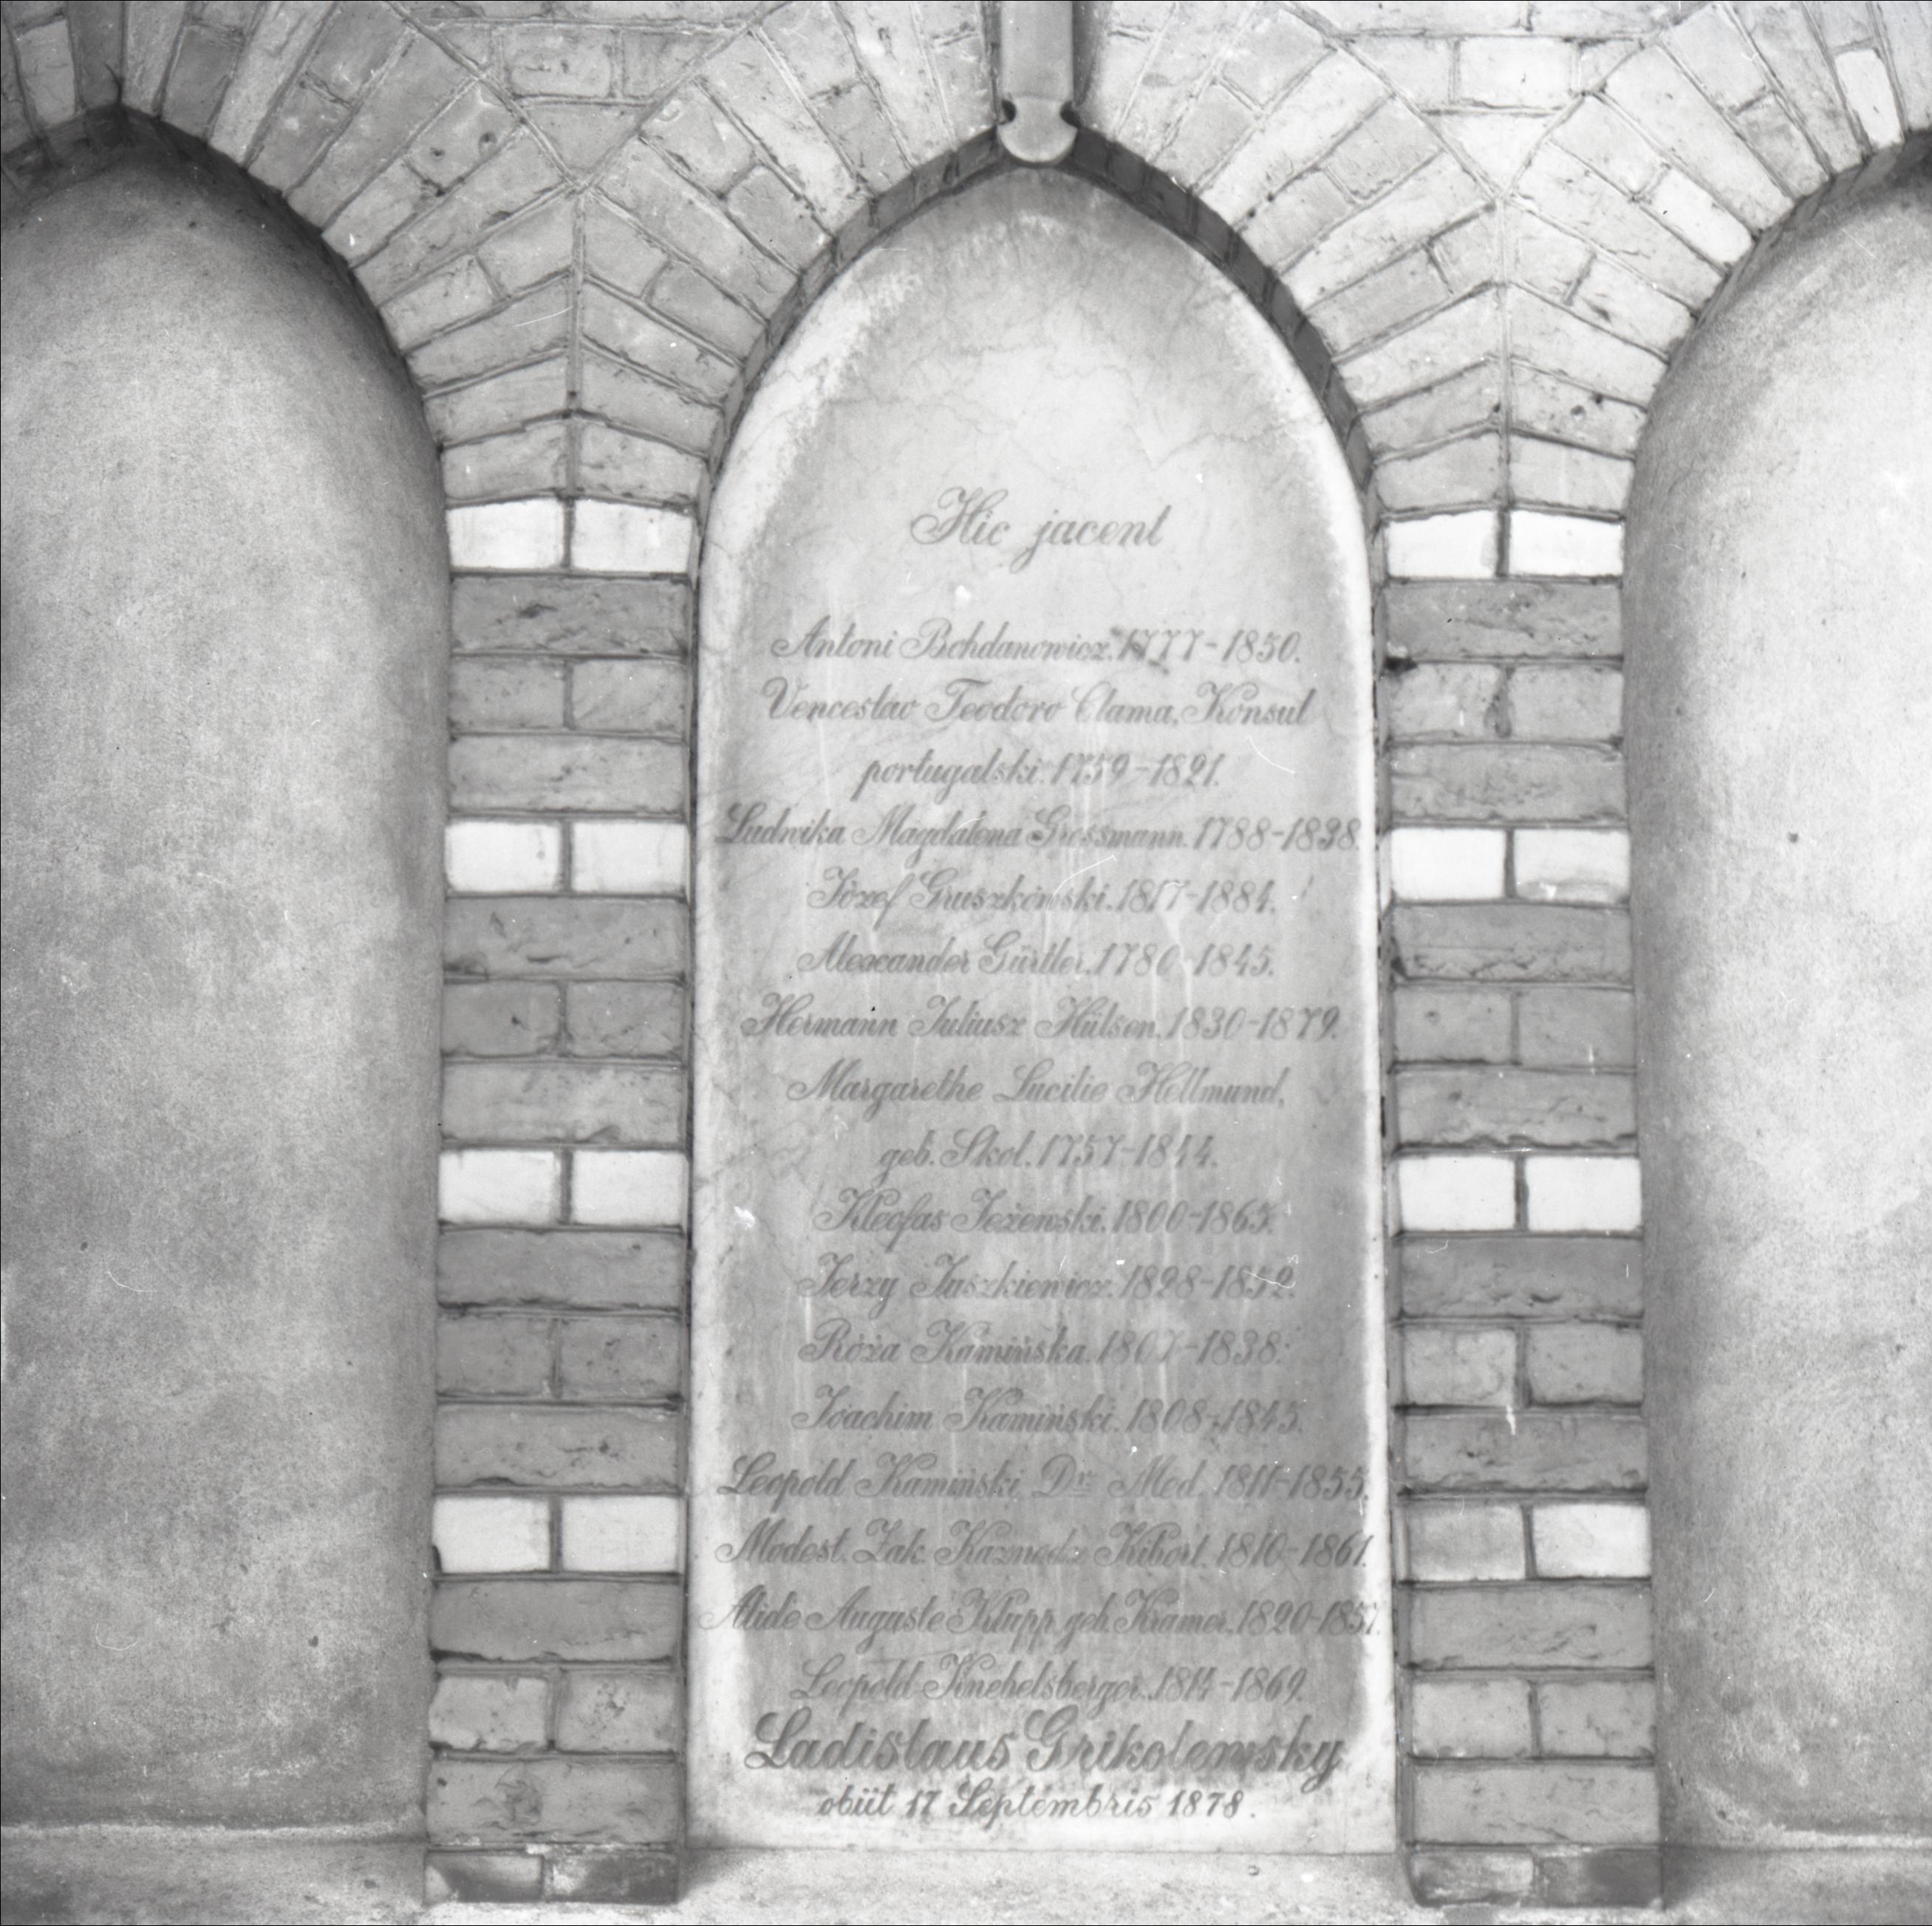 Hic jacent
Antoni Bohdanowicz. 1777-1850.
Venceslao Teodoro Clama, Konsul
portugalski. 1759-1821.
Ludwika Magdalena Grossmann. 1788-1838.
Józef Gruszkowski. 1817-1884.
Alexander Gürtler. 1780-1845.
Hermann Juliusz Hülsen. 1830-1879.
Margarethe Lucilie Hellmund,
geb. Skol. 1757-1844.
Kleofas Jeżewski. 1800-1865.
Jerzy Juszkiewicz. 1828-1852.
Róża Kamińska. 1807-1838.
Joachim Kamiński. 1808-1845.
Leopold Kamiński Dr. Med. 1811-1855.
Modest. Zak. Kibort. 1810-1861.
Alide Auguste Klupp geb. Kramer. 1820-1857.
Leopold Knehelsberger. 1814-1869.
Ladislaus Grikolewsky
obiit 17 Septembris 1878.